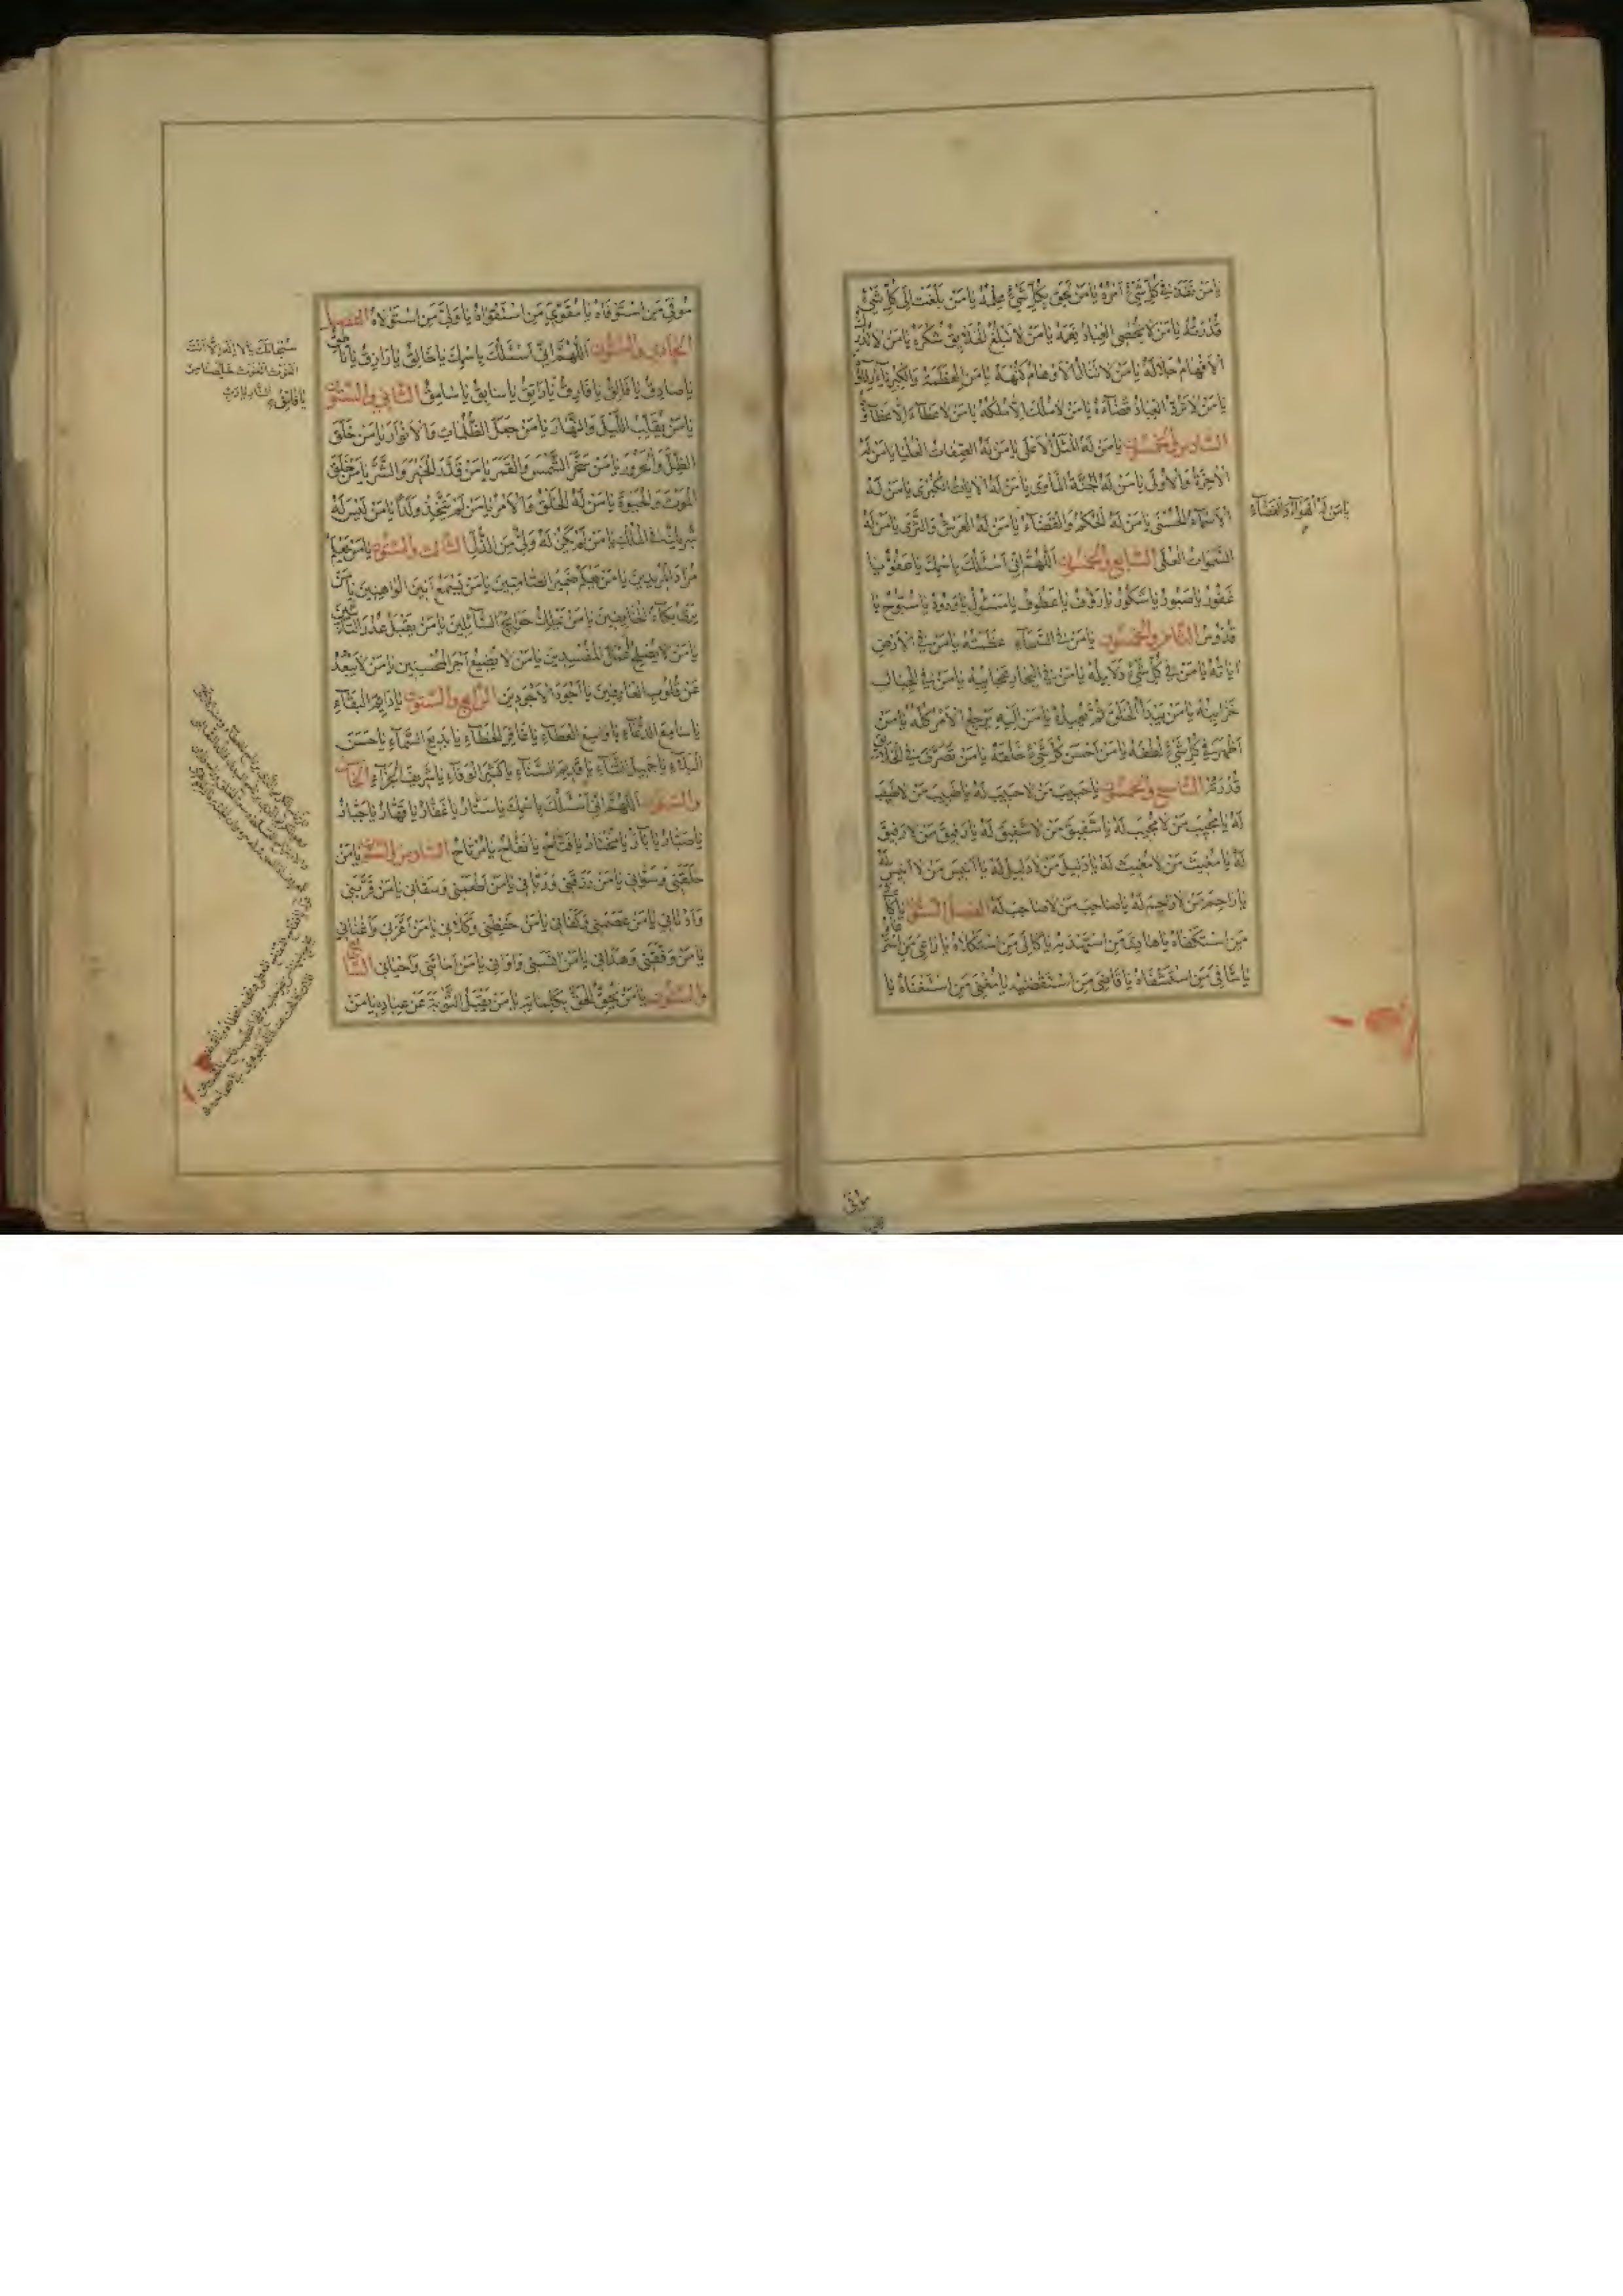 يا من نفذ في كل شيء امره يا من لحق بكل شيء علمه يا من بلغت الى كل شيء
قدرته يا من لا يحصى العباد نعمه يا من لا تبلغ الخلايق شكره يا من لا تدرك
الافهام جلاله يا من لا تنال الاوهام كنهه يا من العظمة والكبرياء رداؤه
يا من لا ترد العباد قضاءه يا من لا ملك الا ملكه يا من لا عطاء الا عطاؤه
السادس والخمسون يا من له المثل الاعلى يا من له الصفات العليا يا من له
الاخرة والاولى يا من له الجنة الماوى يا من له الايات الكبرى يا من له
الاسماء الحسنى يا من له الحكم والقضاء يا من له العرش والثرى يا من له
السموات العلى السابع والخمسون اللهم انى اسئلك باسمك يا عفو يا
غفور يا صبور يا شكور يا رؤف يا عطوف يا مسئول يا ودود يا سبوح يا
قدوس الثامن والخمسون يا من في السماء عظمته يا من في الارض
اياته يا من في كل شيء دلايله يا من في البحار عجايبه يا من في الجبال
خزاينه يا من يبدأ الخلق ثم يعيده يا من اليه يرجع الامر كله يا من
اظهر في كل شيء لطفه يا من احسن كل شيء خلقه يا من تصرف في الخلايق
قدرته التاسع والخمسون يا حبيب من لا حبيب له يا طبيب من لا طبيب
له يا مجيب من لا مجيب له يا شفيق من لا شفيق له يا رفيق من لا رفيق
له يا مغيث من لا مغيث له يا دليل من لا دليل له يا انيس من لا انيس له
يا راحم من لا راحم له يا صاحب من لا صاحب له الفصل الستون يا كافى
من استكفاه يا هادى من استهداه يا كالى من استكلاه يا راعى من استرعاه
يا شافى من استشفاه يا قاضى من استقضاه يا مغنى من استغناه يا
يا من له الهواء والفضاء
موفى
موفى من استوفاه يا مقوى من استقواه يا ولى من استولاه الفصل
الحادي والستون اللهم انى اسئلك باسمك يا خالق يا رازق يا ناطق
يا صادق يا فالق يا فارق يا راتق يا سابق يا سامق الثاني والستون
يا من يقلب الليل والنهار يا من جعل الظلمات والانوار يا من خلق
الظل والحرور يا من سخر الشمس والقمر يا من قدر الخير والشر يا من خلق
الموت والحيوة يا من له الخلق والامر يا من لم يتخذ ولدا يا من ليس له
شريك في الملك يا من لم يكن له ولى من الذل الثالث والستون يا من يعلم
مراد المريدين يا من يعلم ضمير الصامتين يا من يسمع انين الواهنين يا من
يرى بكاء الخايفين يا من يملك حوايج السائلين يا من يقبل عذر التائبين
يا من لا يصلح اعمال المفسدين يا من لا يضيع اجر المحسنين يا من لا يبعد
عن قلوب العارفين يا اجود الاجودين الرابع والستون يا دايم البقاء
يا سامع الدعاء يا واسع العطاء يا غافر الخطاء يا بديع السماء يا حسن
البلاء يا جميل الثناء يا قديم السناء يا كثير الوفاء يا شريف الجزاء الخامس
والستون اللهم انى اسئلك باسمك يا ستار يا غفار يا قهار يا جبار
يا صبار يا بار يا مختار يا فتاح يا نفاح يا مرتاح السادس والستون يا من
خلقنى وسوانى يا من رزقنى وربانى يا من اطعمنى وسقانى يا من قربنى
وادنانى يا من عصمنى وكفانى يا من حفظنى وكلانى يا من اعزنى واغنانى
يا من وفقنى وهدانى يا من انسنى واوانى يا من اماتنى واحيانى السابع
والستون يا من يحق الحق بكلماته يا من يقبل التوبة عن عباده يا من
سبحانك يا لا اله الا انت
الغوث الغوث خلصنا من
النار يا رب
يا فاتق